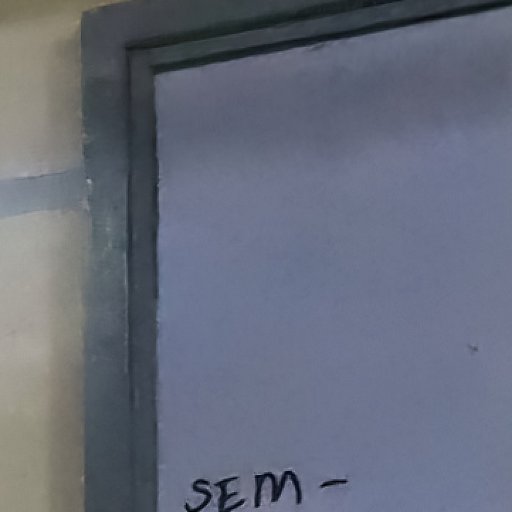 SEM -